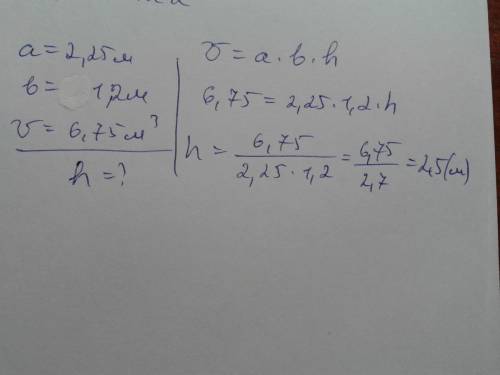 a = 2,25м
b = 1,2м
V = 6,75м³
h = ?
V = a · b · h
6,75 = 2,25 · 1,2 · h
h = 6,75 / 2,25 · 1,2 = 6,75 / 2,7 = 2,5 (м)